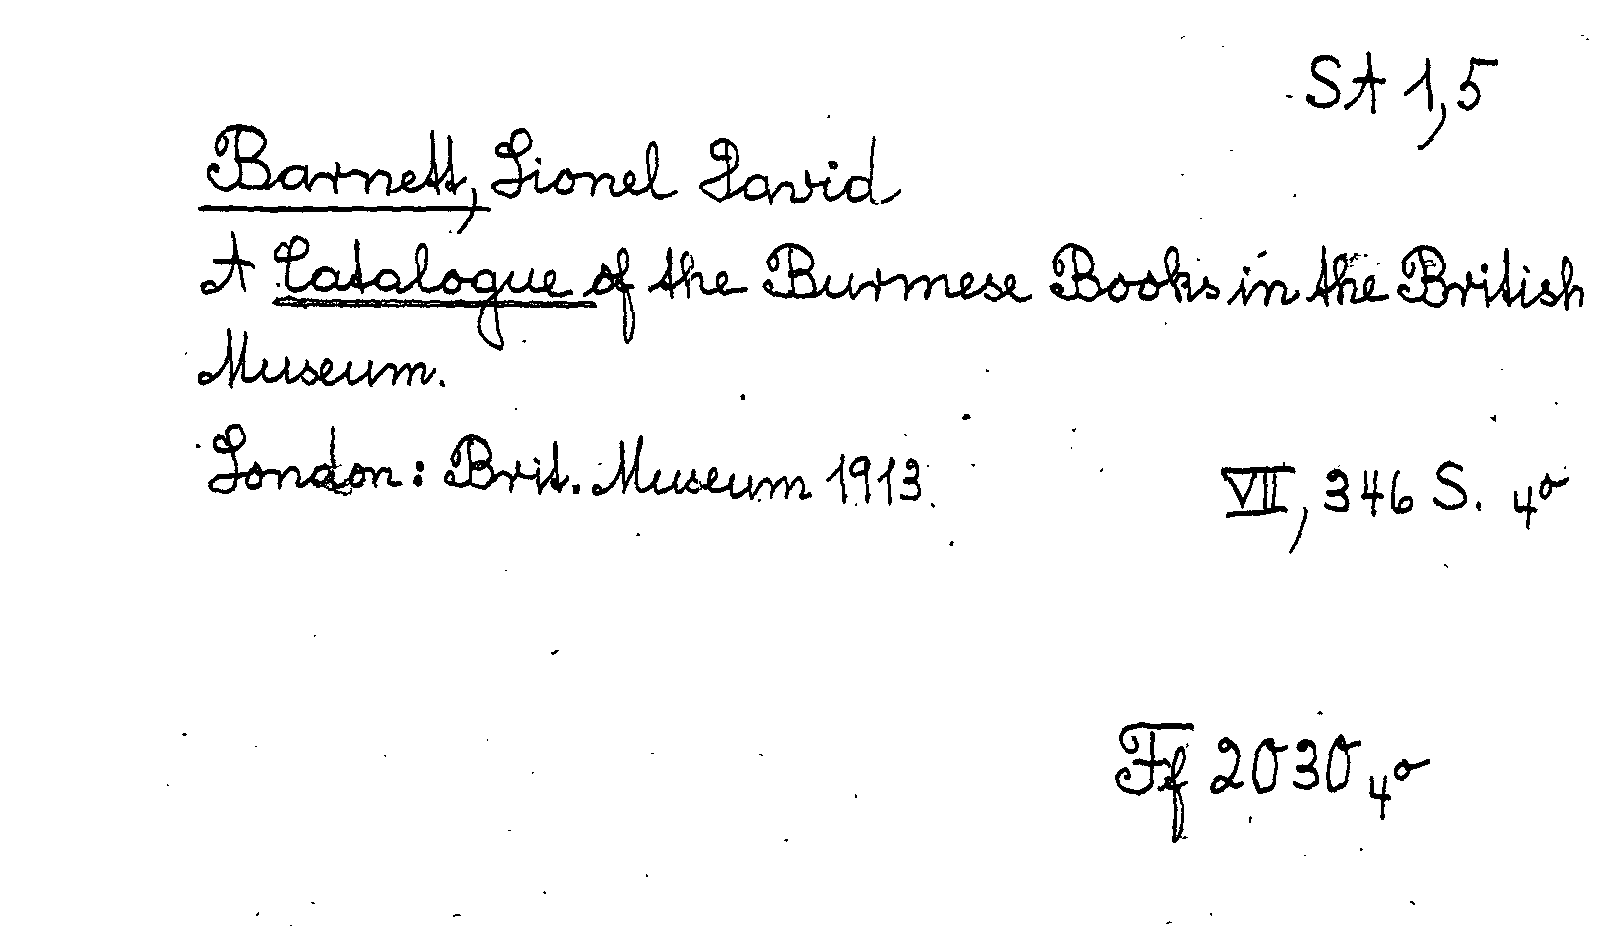 SA 1,5
Barnett, Lionel David
A Catalogue of the Burmese Books in the British
Museum.
London: Brit. Museum 1913. VII, 346 S. 4°
Ff 2030 4°